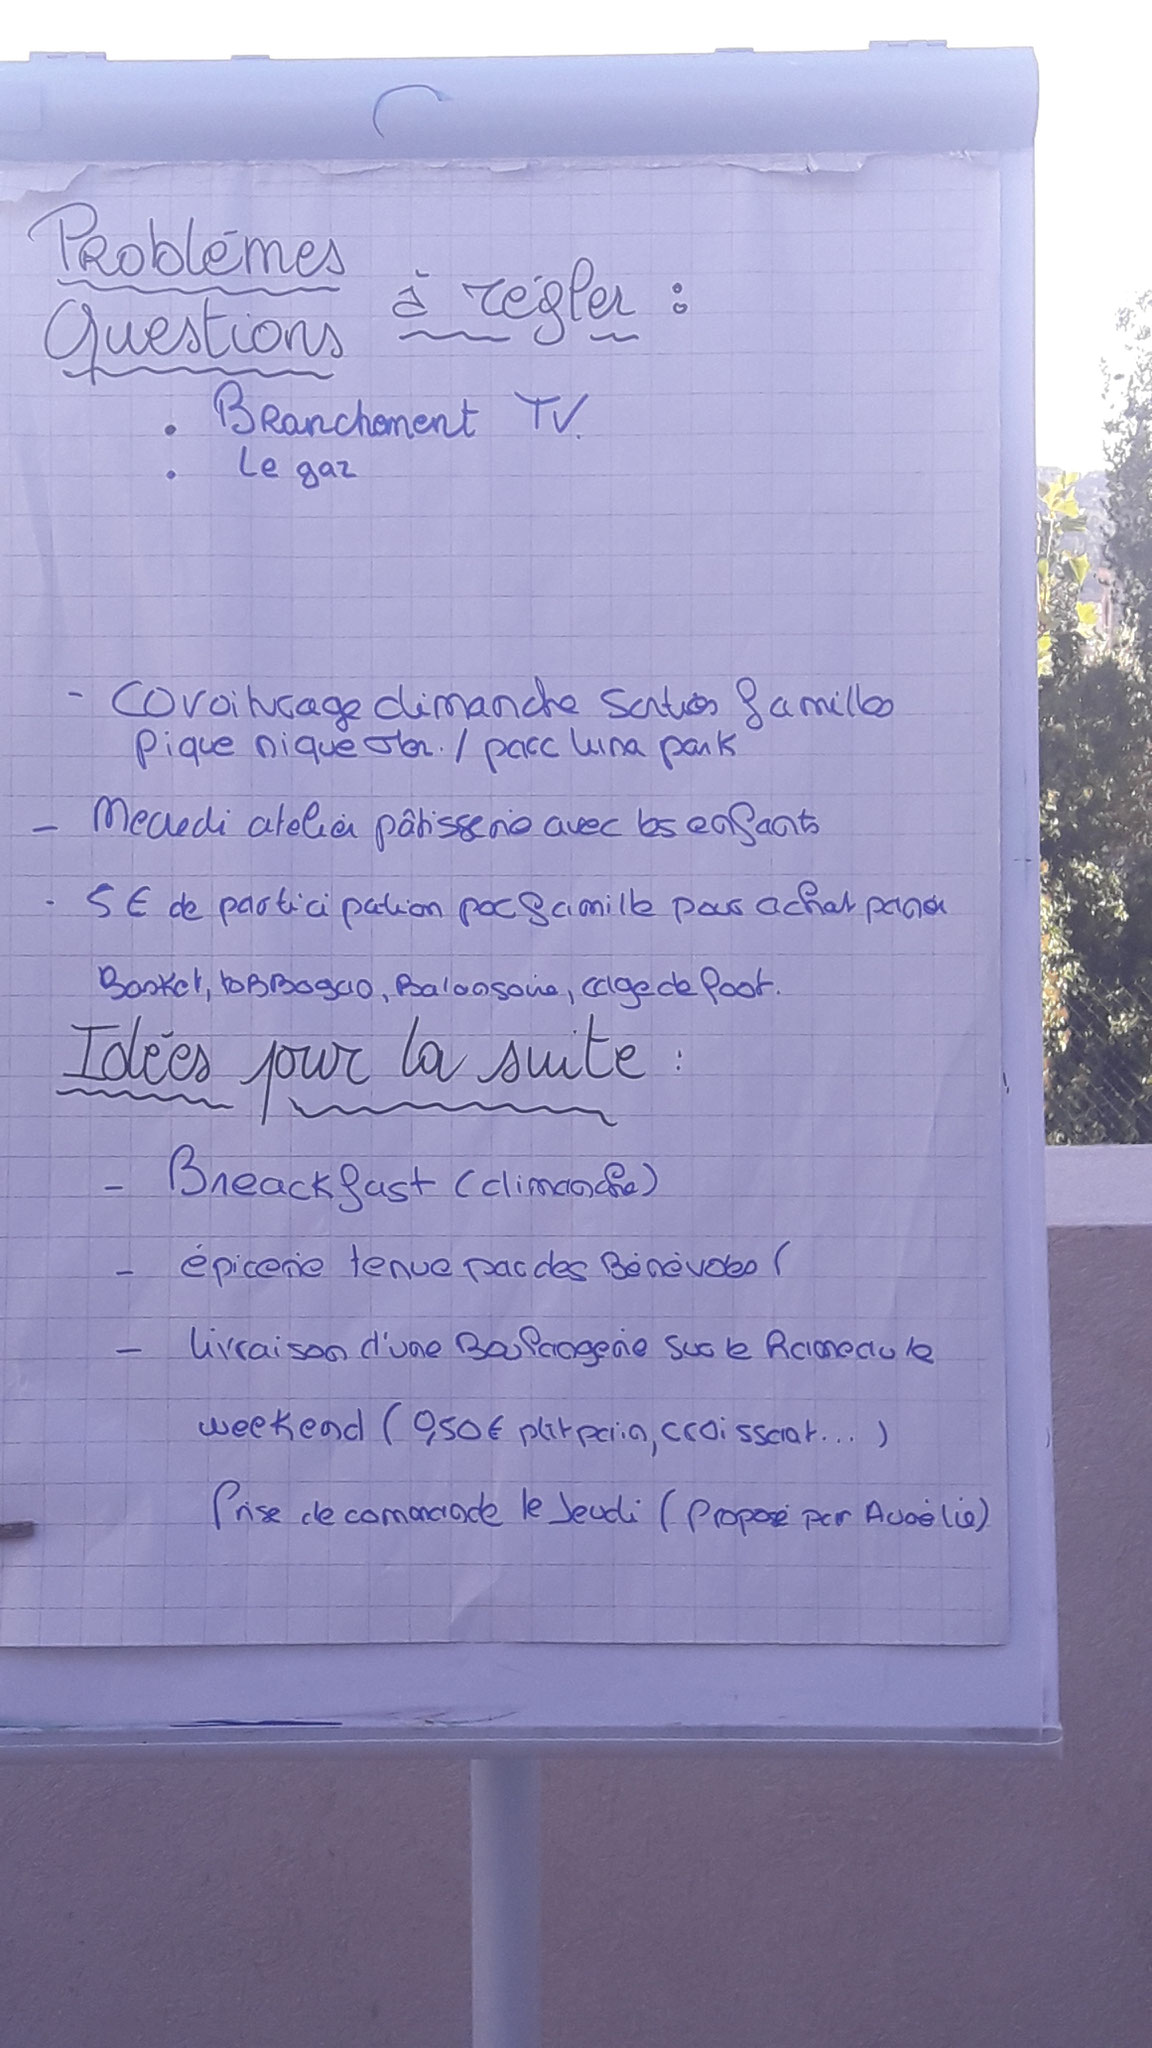 Problémes
Questions à régler :
. Branchement TV.
. Le gaz
- Covoiturage dimanche Sorties familles
pique nique / parc luna park
- Mercredi atelier pâtisserie avec les enfants
. 5€ de participation par famille pour achat panier
Basket, toBBogan, Balançoire, cage de foot.
Idées pour la suite :
- Breackfast (dimanche)
- épicerie tenue par des Bénévoles (
- livraison d'une Boulangerie sur le Rameau le
weekend (0,50€ ptit pain, croissant...)
Prise de commande le Jeudi (Proposé par Aurélie)